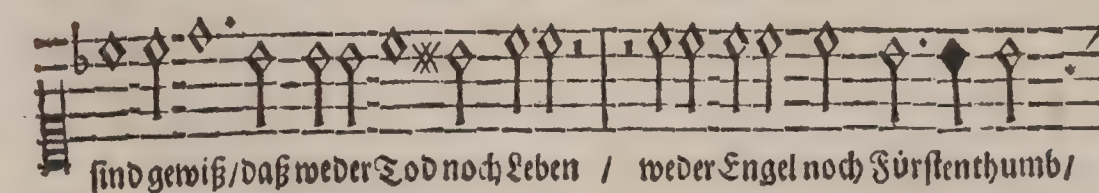 sind gewiß/daß weder Tod noch Leben / weder Engel noch Fürstenthumb/